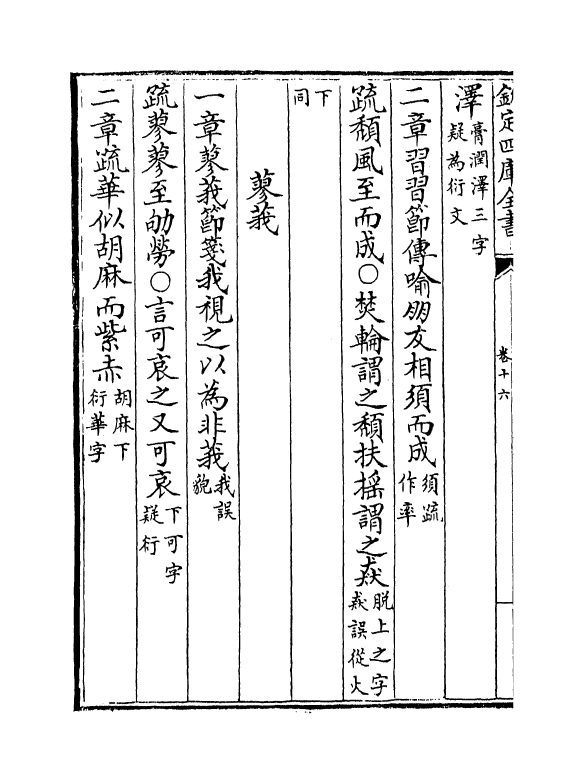 欽定四庫全書
卷十六
澤膏潤澤三字疑為衍文
二章習習節傳喻朋友相須而成須疏作率
疏頽風至而成○焚輪謂之頽扶揺謂之猋脱上之字猋誤從火
下同
蓼莪
一章蓼莪節箋我視之以為非莪我誤貌
疏蓼蓼至劬勞○言可哀之又可哀下可字疑衍
二章疏華似胡麻而紫赤胡麻下衍華字